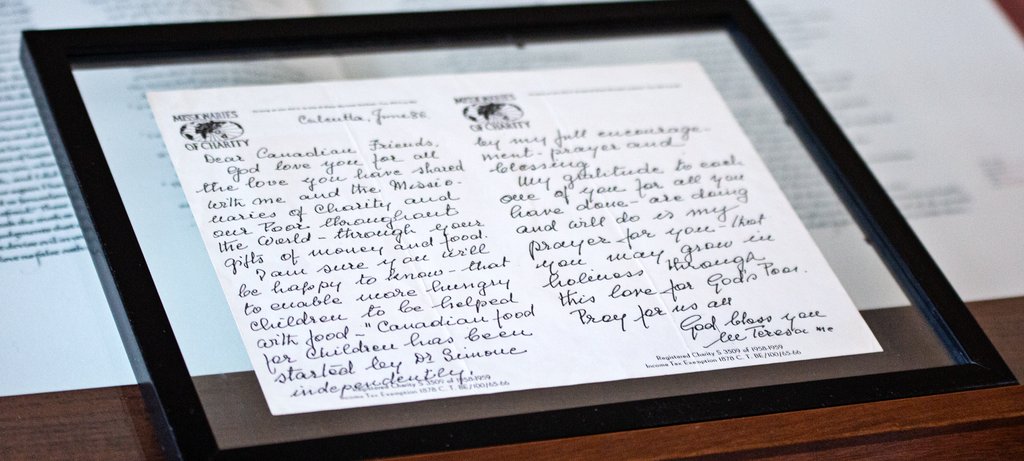 MISSIONARIES
OF CHARITY
Calcutta, June 86
Dear Canadian Friends,
God love you for all
the love you have shared
with me and the Missio-
naries of Charity and
our Poor throughout
the World - through your
gifts of money and food.
I am sure you will
be happy to know - that
to enable more hungry
children to be helped
with food - "Canadian food
for Children has been
started by Dr Simone
independently.
Registered Charity S 3509 of 1958-1959
Income Tax Exemption 1878 C. T. BE/100/65-66
MISSIONARIES
OF CHARITY
by my full encourage-
ment - prayer and
blessing
My gratitude to each
one of you for all you
have done - are doing
and will do is my
prayer for you - that
you may grow in
holiness through
this love for God's Poor.
Pray for us all
God bless you
M Teresa MC
Registered Charity S 3509 of 1958-1959
Income Tax Exemption 1878 C. T. BE/100/65-66